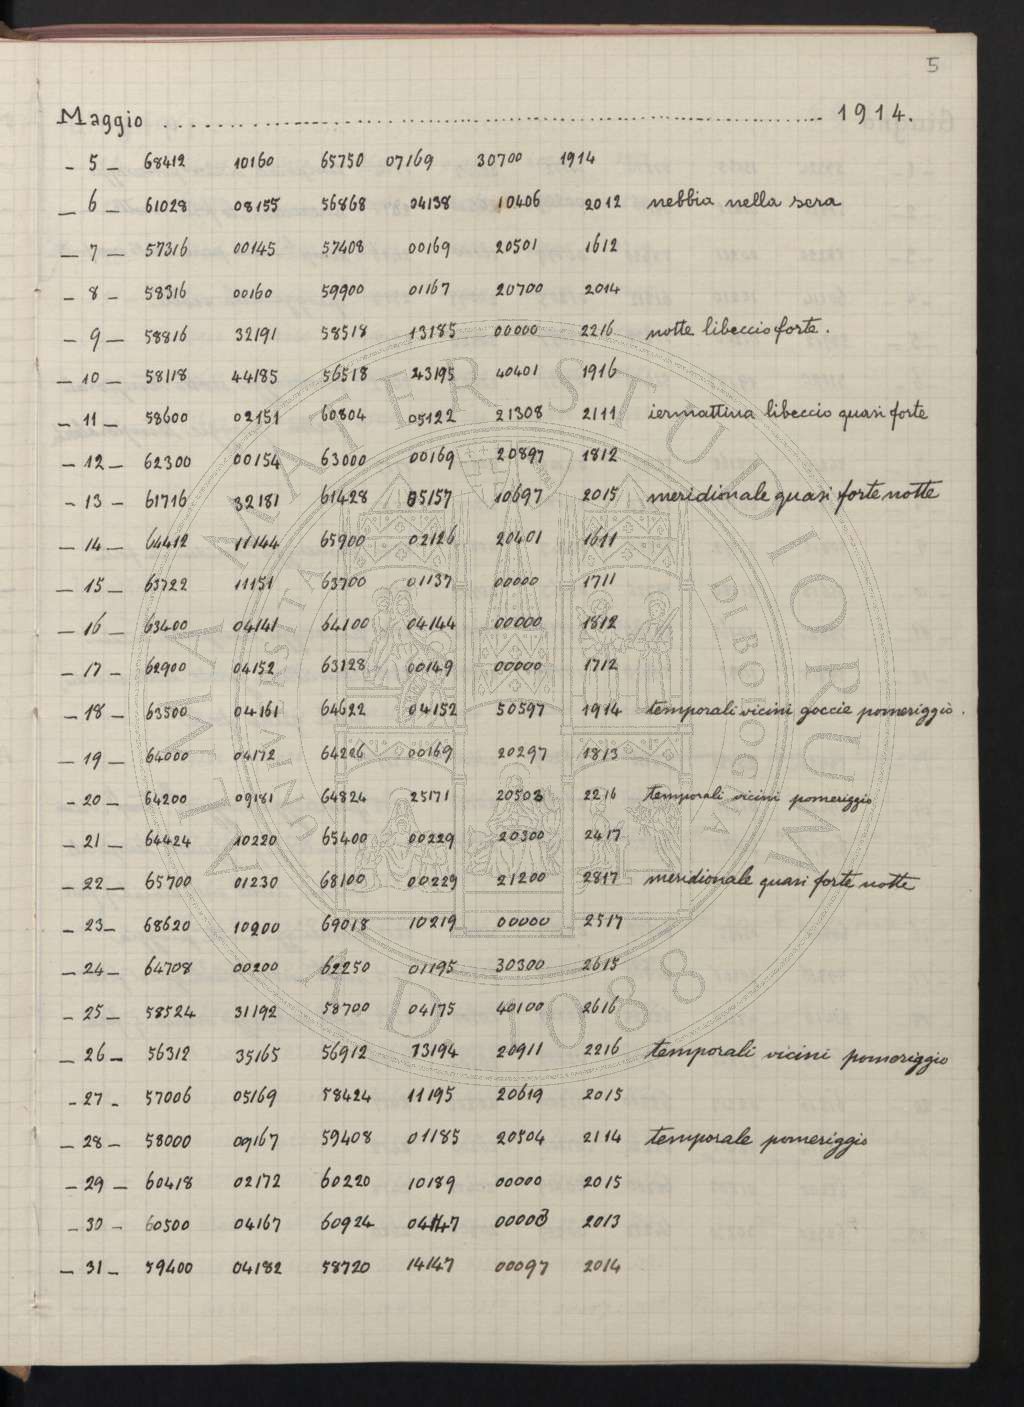 5
Maggio 1914.
- 5 - 68412 10160 65750 07169 30700 1914
- 6 - 61028 08155 56868 04138 10406 2012 nebbia nella sera
- 7 - 57316 00145 57408 00169 20501 1612
- 8 - 58316 00160 59900 01167 20700 2014
- 9 - 58816 32191 58518 13185 00000 2216 notte libeccio forte.
- 10 - 58118 44185 56518 23195 40401 1916
- 11 - 58600 02151 60804 05122 21308 2111 iermattina libeccio quasi forte
- 12 - 62300 00154 63000 00169 20897 1812
- 13 - 61716 32181 61428 05157 10697 2015 meridionale quasi forte notte
- 14 - 64412 11144 65900 02126 20401 1611
- 15 - 63722 11151 63700 01137 00000 1711
- 16 - 63400 04141 64100 04144 00000 1812
- 17 - 62900 04152 63128 00149 00000 1712
- 18 - 63500 04161 64622 04152 50597 1914 temporali vicini goccie pomeriggio.
- 19 - 64000 04172 64226 00169 20297 1813
- 20 - 64200 09181 64824 25171 20503 2216 temporali vicini pomeriggio
- 21 - 64424 10220 65400 00229 20300 2417
- 22 - 65700 01230 68100 00229 21200 2817 meridionale quasi forte notte
- 23 - 68620 10200 69018 10219 00000 2517
- 24 - 64708 00200 62250 01195 30300 2615
- 25 - 58524 31192 58700 04175 40100 2616
- 26 - 56312 35165 56912 13194 20911 2216 temporali vicini pomeriggio
- 27 - 57006 05169 58424 11195 20619 2015
- 28 - 58000 09167 59408 01185 20504 2114 temporale pomeriggio
- 29 - 60418 02172 60220 10189 00000 2015
- 30 - 60500 04167 60924 04147 00003 2013
- 31 - 59400 04182 58720 14147 00097 2014
ALMA MATER STUDIORUM
UNIVERSITÀ DI BOLOGNA
A.D. 1088